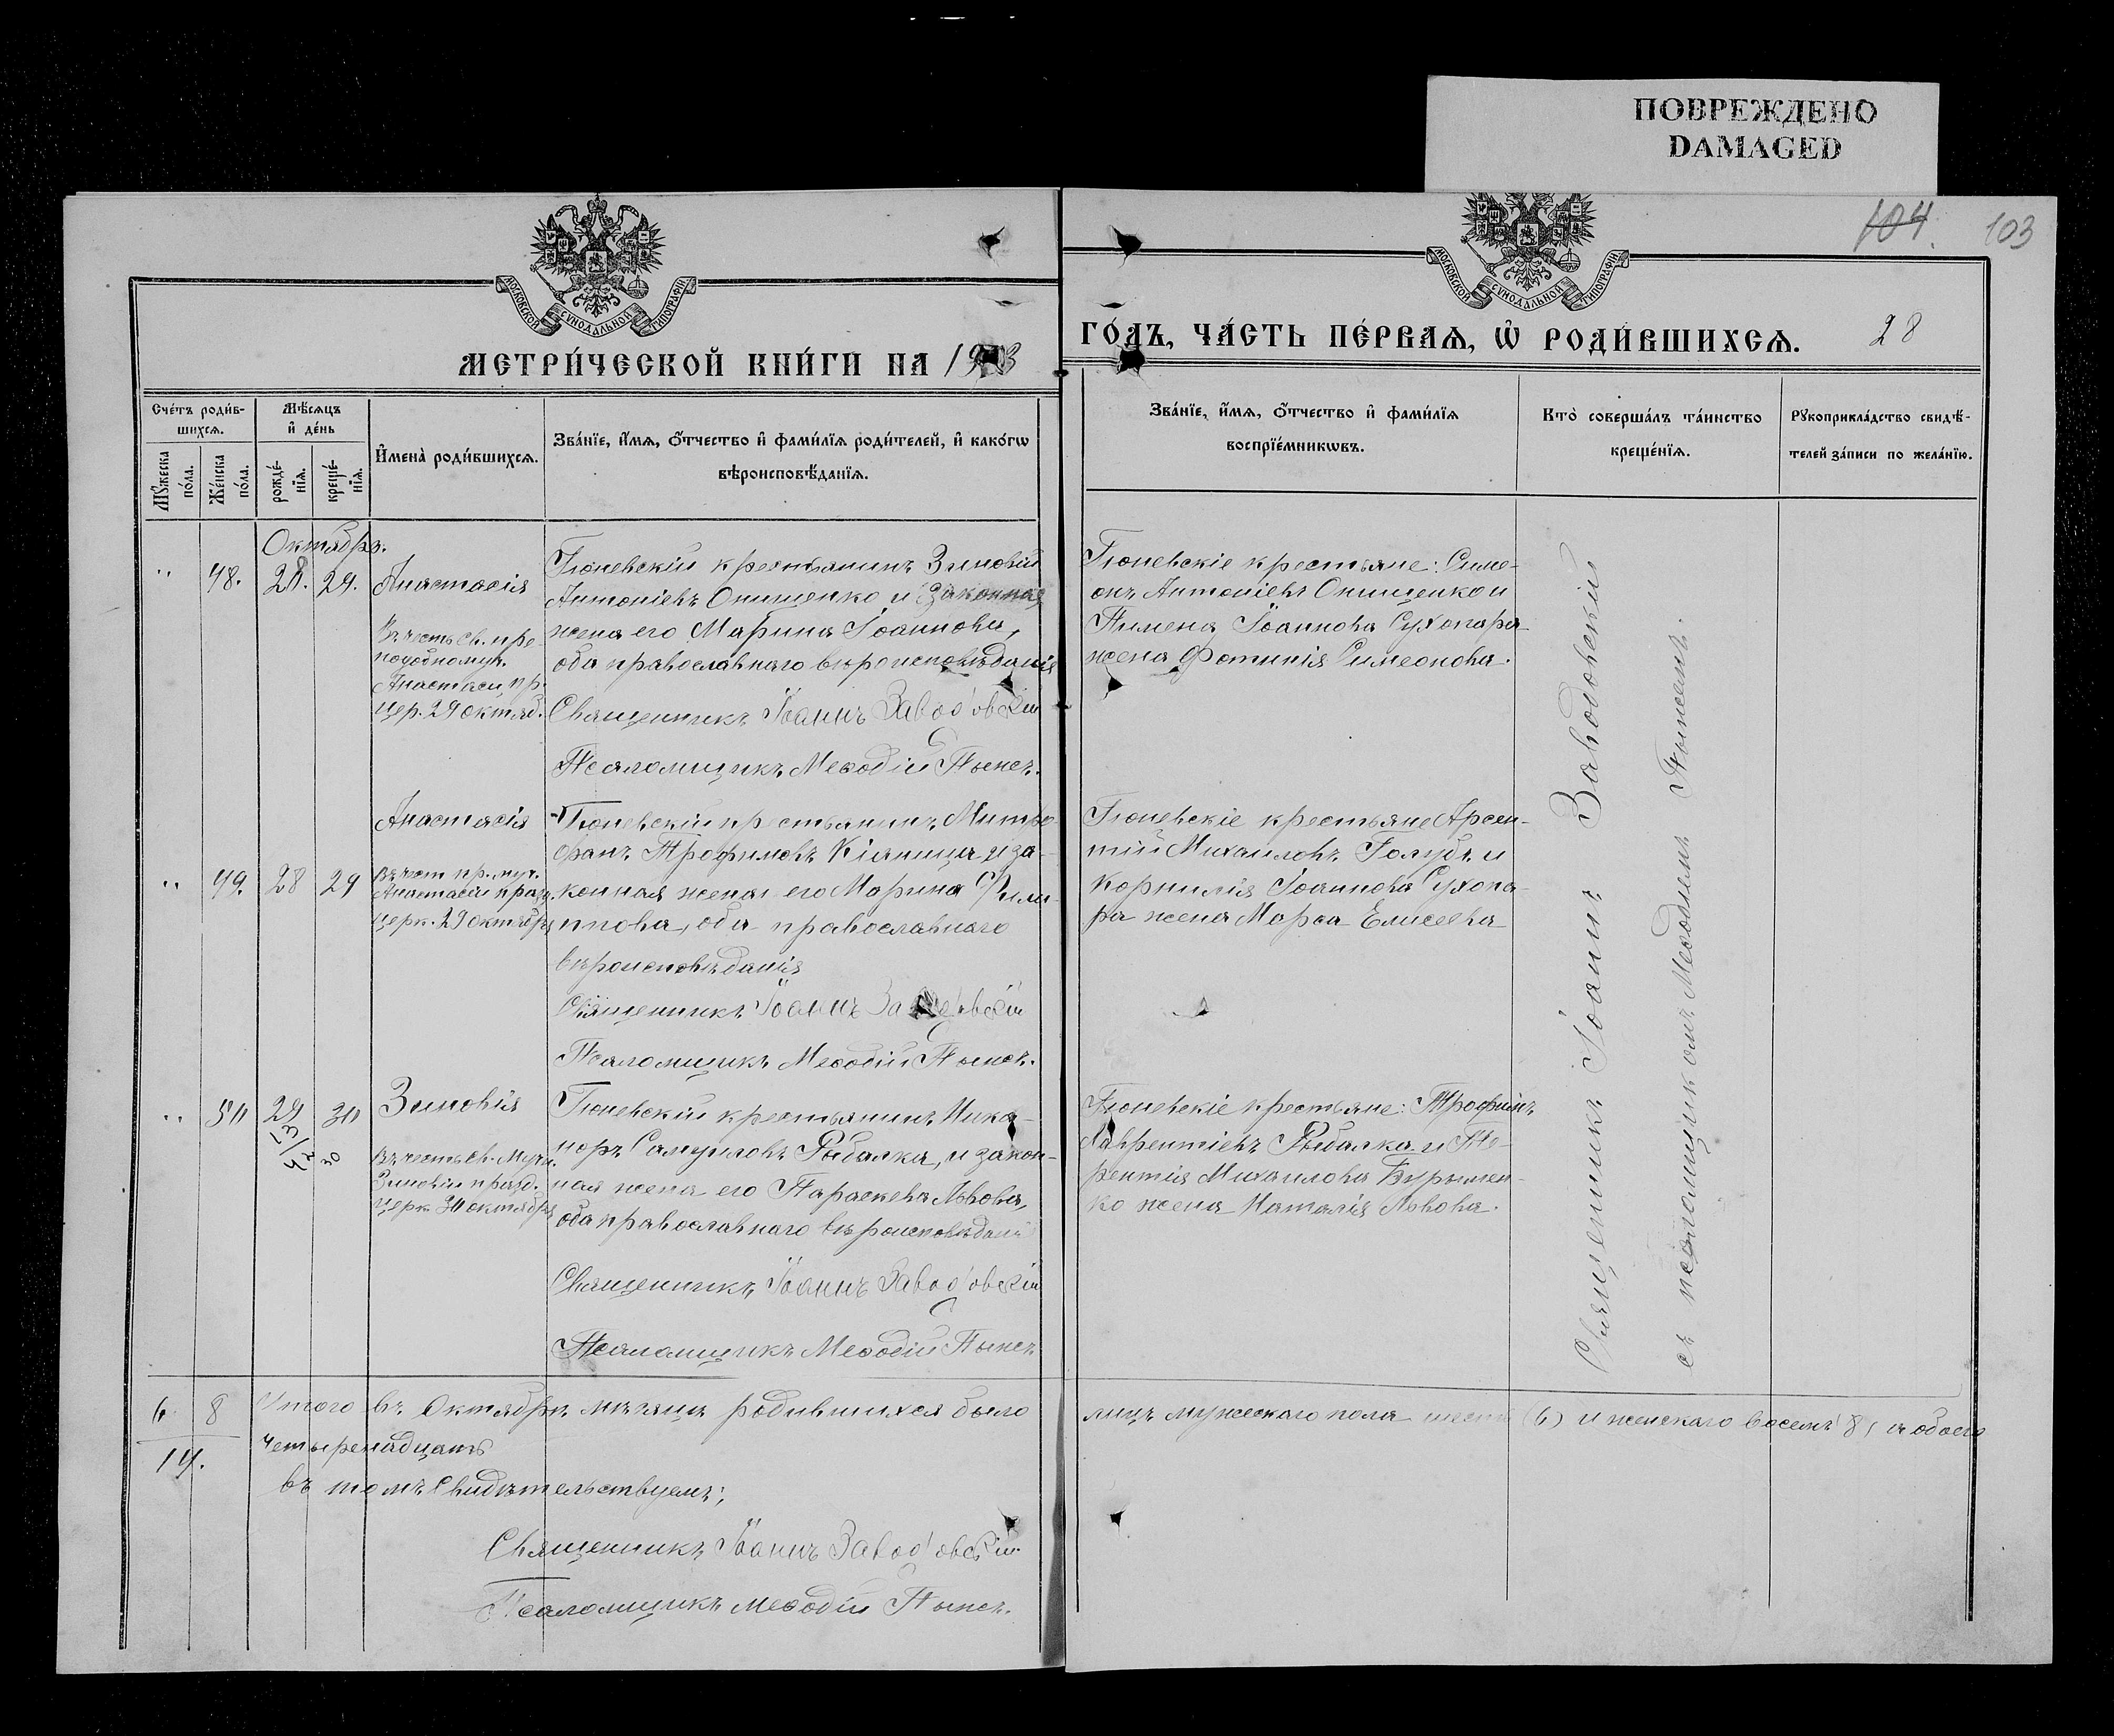 ПОВРЕЖДЕНО
DAMAGED
104. 103
МОСКОВСКОЙ СУНОДАЛЬНОЙ ТИПОГРАФІИ
МОСКОВСКОЙ СУНОДАЛЬНОЙ ТИПОГРАФІИ
МЕТРИ́ЧЕСКОЙ КНИ́ГИ НА 1913
ГО́ДЪ, ЧА́СТЬ ПЕ́РВАѦ, Ѡ҆ РОДИ́ВШИХСѦ. 28
Сче́тъ роди́в-
шихсѧ.
Мꙋ́жеска
по́ла.
Же́нска
по́ла.
Мѣ́сѧцъ
и҆ де́нь
рожде́-
нїѧ.
креще́-
нїѧ.
И҆мена̀ роди́вшихсѧ.
Зва́нїе, и҆́мѧ, ѻ҆́тчество и҆ фами́лїѧ роди́телей, и҆ како́гѡ
вѣроисповѣ́данїѧ.
Зва́нїе, и҆́мѧ, ѻ҆́тчество и҆ фами́лїѧ
воспрїе́мникѡвъ.
Кто̀ соверша́лъ та́инство
креще́нїѧ.
Рꙋкоприкла́дство свидѣ́-
телей за́писи по жела́нїю.
Октябрь.
" 48. 28. 29. Анастасія
Въ честь св. пре-
подобномуч.
Анастасіи, пр.
цер. 29 октяб.
Гюневскій крестьянинъ Зиновій
Антоніевъ Онищенко и законная
жена его Марина Іоаннова,
оба православнаго вѣроисповѣданія
Священникъ Іоаннъ Заводовскій
Псаломщикъ Меѳодій Пынев.
Гюневскіе крестьяне: Симе-
онъ Антоніевъ Онищенко и
Пимена Іоаннова Сухопара
жена Фотинія Симеонова.
" 49. 28 29 Анастасія
Въ чест пр. муч.
Анастасіи празд.
церк. 29 октября
Гюневскій крестьянинъ Митро-
фанъ Трофимовъ Кіяница и за-
конная жена его Марина Фили-
ппова, оба православнаго
вѣроисповѣданія
Священникъ Іоаннъ Заводовскій
Псаломщикъ Меѳодій Пынев.
Гюневскіе крестьяне Арсен-
тій Михаиловъ Голубъ и
Корнилія Іоаннова Сухопа-
ра жена Марѳа Елисеева
" 50 29 30 Зиновія
30
Въ честь св. Муч.
Зиновіи празд.
церк 30 октября
Гюневскій крестьянинъ Ника-
норъ Самуиловъ Рыбалка, и закон-
ная жена его Параскева Львова,
оба православнаго вѣроисповѣдані
Священникъ Іоаннъ Заводовскій
Псаломщикъ Меѳодій Пынев
Гюневскіе крестьяне: Трофимъ
Лаврентіевъ Рыбалка и Те-
рентія Михаилова Бурымен-
ко жена Наталія Львова.
Священникъ Іоаннъ Заводовскій
съ псаломщикомъ Меѳодіемъ
6 8 Итого въ Октябрѣ мѣсяцѣ родившихся было
лицъ мужескаго пола шесть (6) и женскаго восемь 8, а обоего
14. четыренадцать
въ томъ свидѣтельствуемъ;
Священникъ Іоаннъ Заводовскій.
Псаломщикъ Меѳодій Пынев.